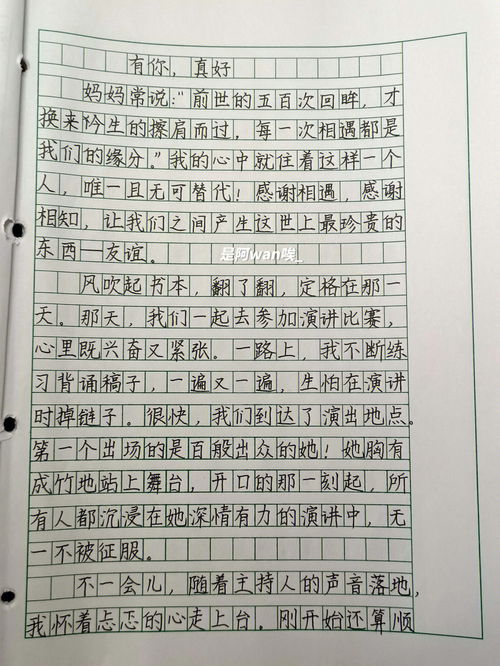 有你，真好
妈妈常说：“前世的五百次回眸，才
换来今生的擦肩而过，每一次相遇都是
我们的缘分。”我的心中就住着这样一个
人，唯一且无可替代！感谢相遇，感谢
相知，让我们之间产生这世上最珍贵的
东西—友谊。
是阿wan唉_
风吹起书本，翻了翻，定格在那一
天。那天，我们一起去参加演讲比赛，
心里既兴奋又紧张。一路上，我不断练
习背诵稿子，一遍又一遍，生怕在演讲
时掉链子。很快，我们到达了演出地点。
第一个出场的是百般出众的她！她胸有
成竹地站上舞台，开口的那一刻起，所
有人都沉浸在她深情有力的演讲中，无
一不被征服。
不一会儿，随着主持人的声音落地，
我怀着忐忑的心走上台。刚开始还算顺